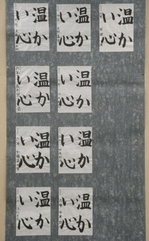 温かい心
温かい心
温かい心
温かい心
温かい心
温かい心
温かい心
温かい心
温かい心